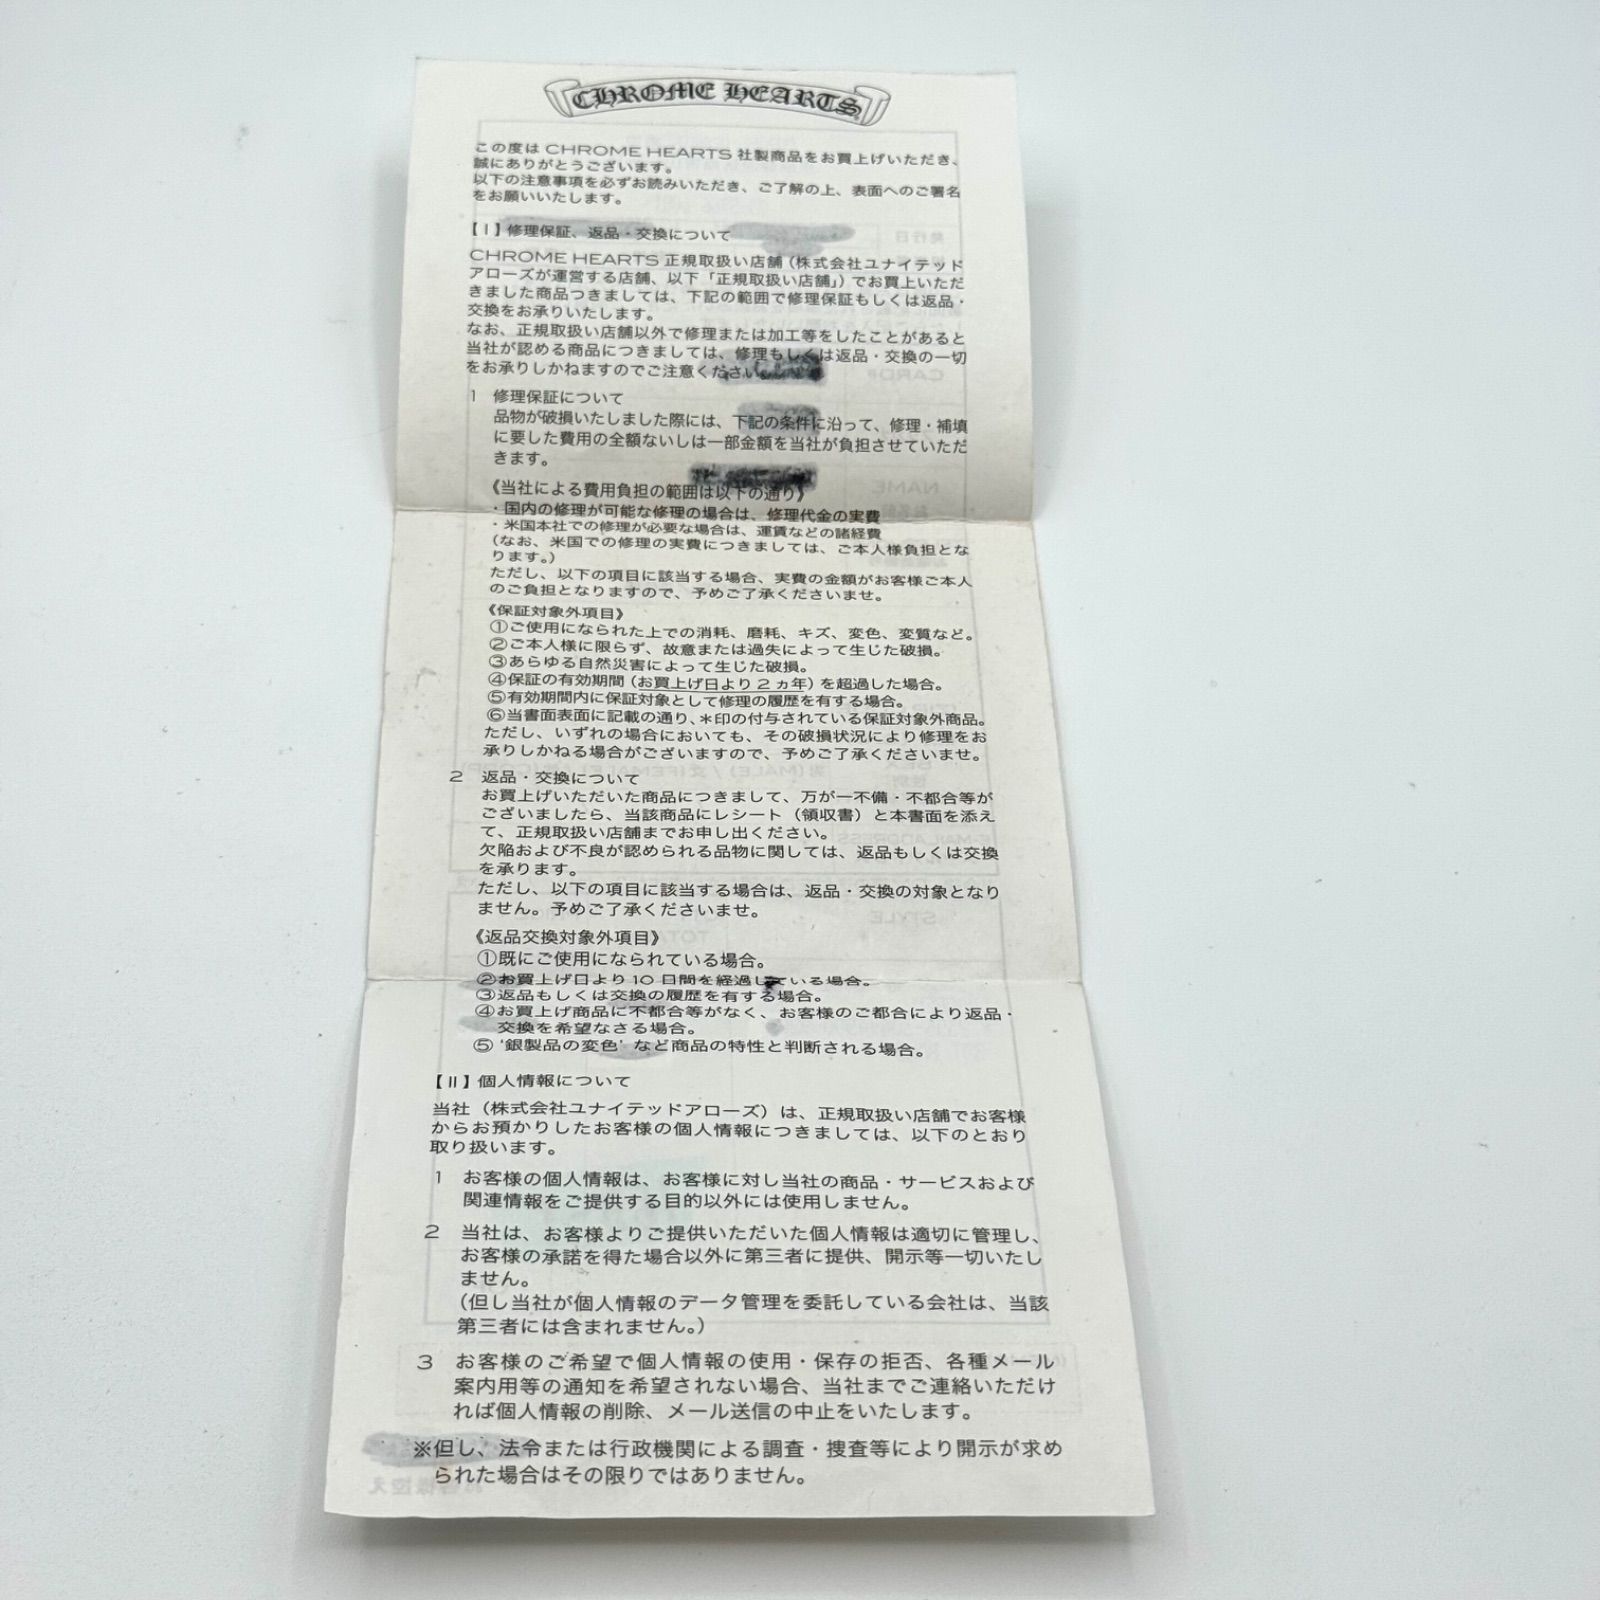 CHROME HEARTS
この度は CHROME HEARTS 社製商品をお買上げいただき、
誠にありがとうございます。
以下の注意事項を必ずお読みいただき、ご了解の上、表面へのご署名
をお願いいたします。
【Ⅰ】修理保証、返品・交換について
CHROME HEARTS 正規取扱い店舗（株式会社ユナイテッド
アローズが運営する店舗、以下「正規取扱い店舗」）でお買上いただ
きました商品つきましては、下記の範囲で修理保証もしくは返品・
交換をお承りいたします。
なお、正規取扱い店舗以外で修理または加工等をしたことがあると
当社が認める商品につきましては、修理もしくは返品・交換の一切
をお承りしかねますのでご注意ください。
1 修理保証について
品物が破損いたしました際には、下記の条件に沿って、修理・補填
に要した費用の全額ないしは一部金額を当社が負担させていただ
きます。
《当社による費用負担の範囲は以下の通り》
・国内の修理が可能な修理の場合は、修理代金の実費
・米国本社での修理が必要な場合は、運賃などの諸経費
（なお、米国での修理の実費につきましては、ご本人様負担とな
ります。）
ただし、以下の項目に該当する場合、実費の金額がお客様ご本人
のご負担となりますので、予めご了承くださいませ。
《保証対象外項目》
①ご使用になられた上での消耗、磨耗、キズ、変色、変質など。
②ご本人様に限らず、故意または過失によって生じた破損。
③あらゆる自然災害によって生じた破損。
④保証の有効期間（お買上げ日より２ヵ年）を超過した場合。
⑤有効期間内に保証対象として修理の履歴を有する場合。
⑥当書面表面に記載の通り、＊印の付与されている保証対象外商品。
ただし、いずれの場合においても、その破損状況により修理をお
承りしかねる場合がございますので、予めご了承くださいませ。
2 返品・交換について
お買上げいただいた商品につきまして、万が一不備・不都合等が
ございましたら、当該商品にレシート（領収書）と本書面を添え
て、正規取扱い店舗までお申し出ください。
欠陥および不良が認められる品物に関しては、返品もしくは交換
を承ります。
ただし、以下の項目に該当する場合は、返品・交換の対象となり
ません。予めご了承くださいませ。
《返品交換対象外項目》
①既にご使用になられている場合。
②お買上げ日より10日間を経過している場合。
③返品もしくは交換の履歴を有する場合。
④お買上げ商品に不都合等がなく、お客様のご都合により返品・
交換を希望なさる場合。
⑤‘銀製品の変色’など商品の特性と判断される場合。
【Ⅱ】個人情報について
当社（株式会社ユナイテッドアローズ）は、正規取扱い店舗でお客様
からお預かりしたお客様の個人情報につきましては、以下のとおり
取り扱います。
1 お客様の個人情報は、お客様に対し当社の商品・サービスおよび
関連情報をご提供する目的以外には使用しません。
2 当社は、お客様よりご提供いただいた個人情報は適切に管理し、
お客様の承諾を得た場合以外に第三者に提供、開示等一切いたし
ません。
（但し当社が個人情報のデータ管理を委託している会社は、当該
第三者には含まれません。）
3 お客様のご希望で個人情報の使用・保存の拒否、各種メール
案内用等の通知を希望されない場合、当社までご連絡いただけ
れば個人情報の削除、メール送信の中止をいたします。
※但し、法令または行政機関による調査・捜査等により開示が求め
られた場合はその限りではありません。